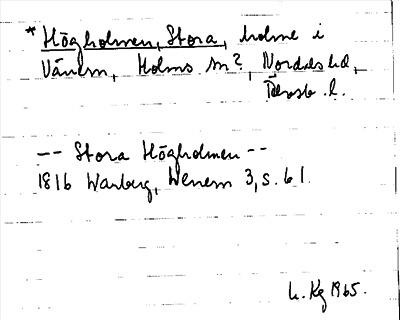 * Högholmen, Stora, holme i
Vänern, Holms sn?, Nordals hd,
Älvsb. l.
-- Stora Högholmen --
1816 Warberg, Wenern 3, s. 61.
L. Kg 1965.